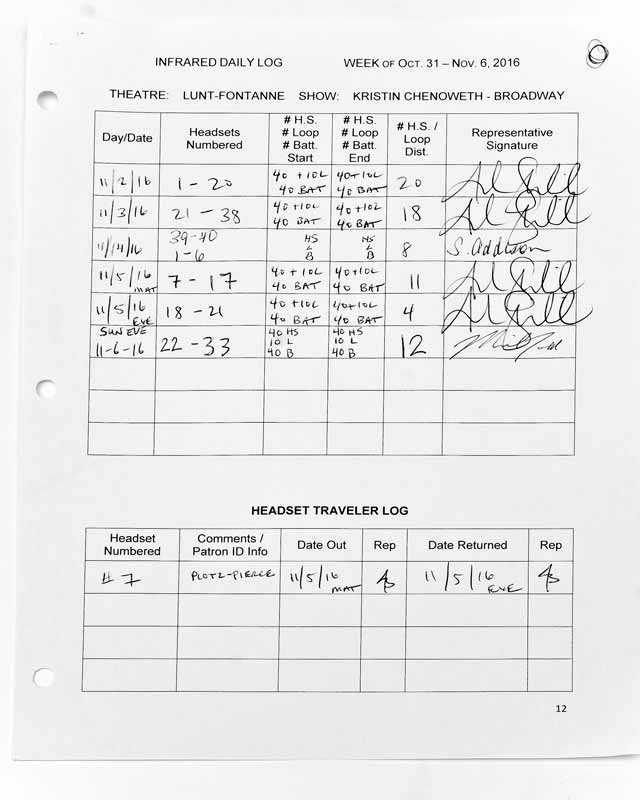 INFRARED DAILY LOG WEEK OF OCT. 31 – NOV. 6, 2016
THEATRE: LUNT-FONTANNE SHOW: KRISTIN CHENOWETH - BROADWAY
Day/Date Headsets Numbered # H.S. # Loop # Batt. Start # H.S. # Loop # Batt. End # H.S. / Loop Dist. Representative Signature
11/2/16 1 - 20 40 + 10L 40 BAT 40+10L 40 BAT 20
11/3/16 21 - 38 40+10L 40 BAT 40+10L 40 BAT 18
39-40 1-6 HS L B HS L B 8 S. Addison
11/5/16 MAT 7 - 17 40+10L 40 BAT 40+10L 40 BAT 11
11/5/16 EVE 18 - 21 40+10L 40 BAT 40+10L 40 BAT 4
SUN EVE 11-6-16 22 - 33 40 HS 10 L 40 B 40 HS 10 L 40 B 12
HEADSET TRAVELER LOG
Headset Numbered Comments / Patron ID Info Date Out Rep Date Returned Rep
# 7 PLOTZ-PIERCE 11/5/16 MAT 11/5/16 EVE
12